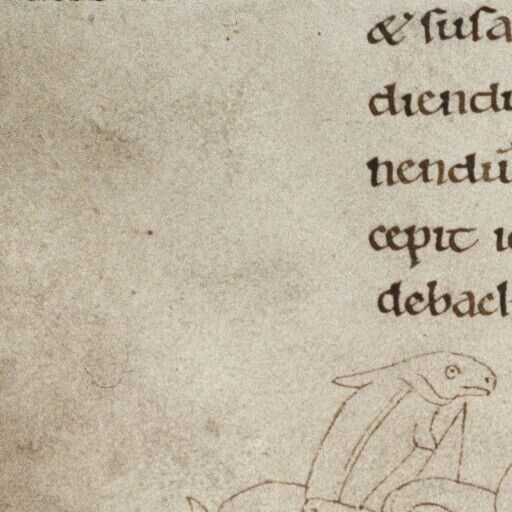 & susa
diendu
nendū
cepit ie
debach